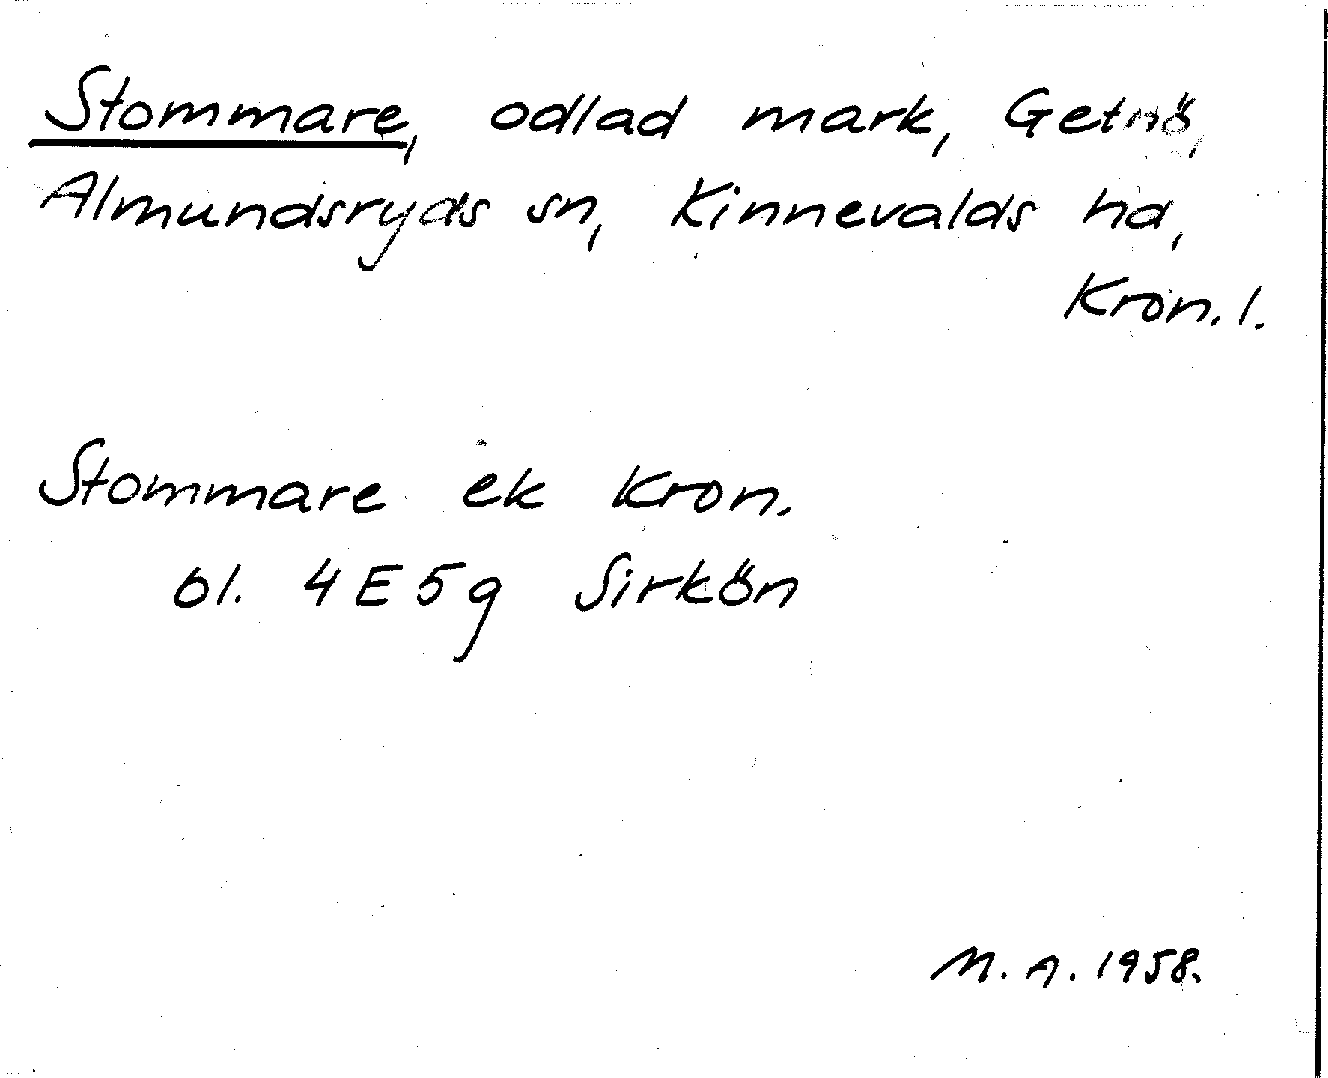 Stommare, odlad mark, Getnö,
Almundsryds sn, Kinnevalds hd,
Kron. l.
Stommare ek Kron.
bl. 4E5g Sirkön
M. A. 1958.